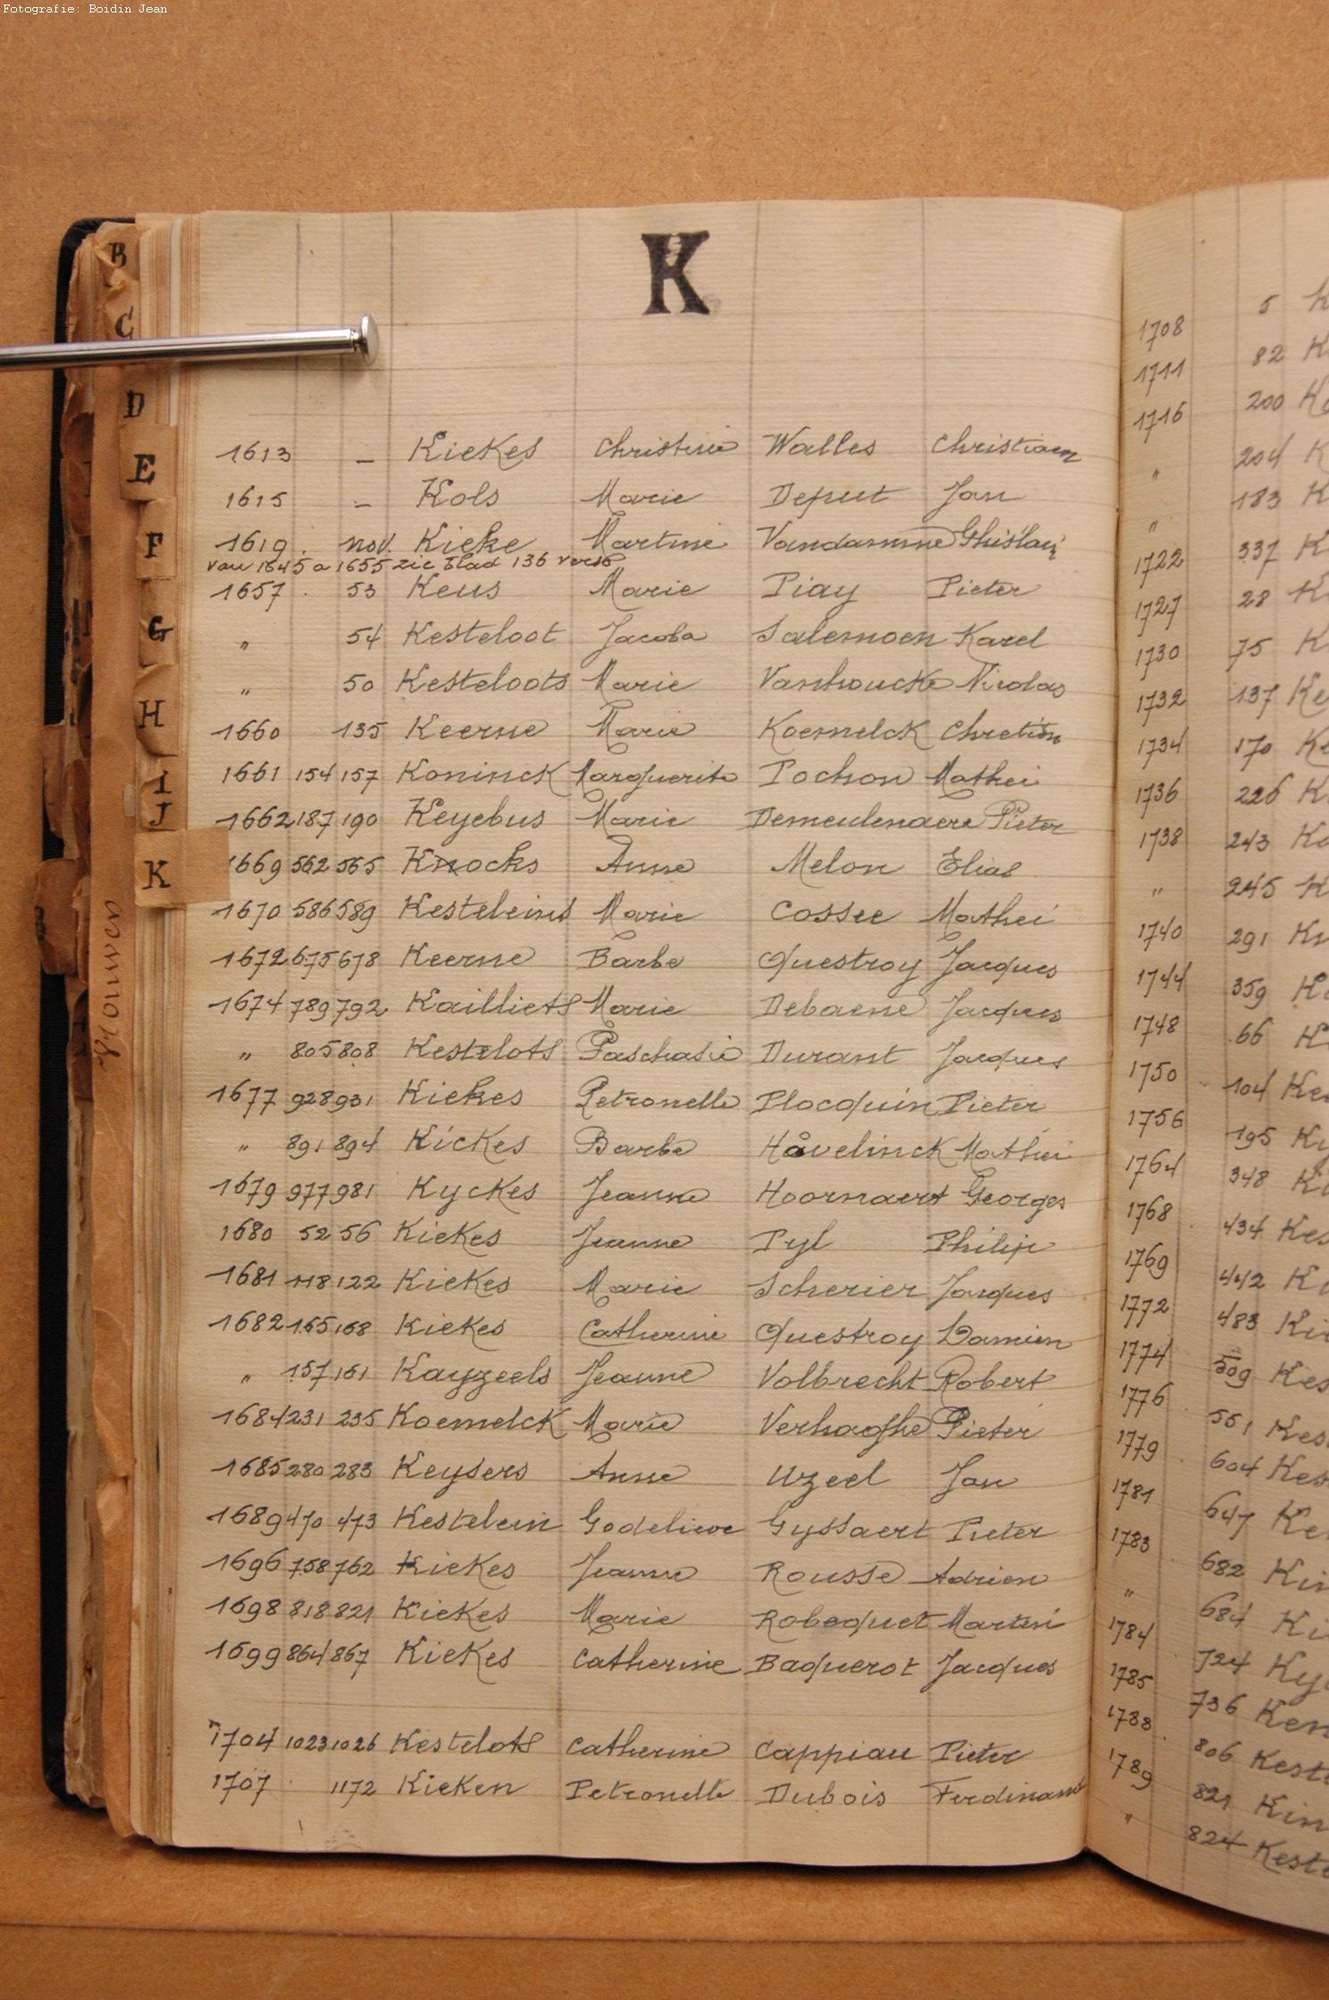 Fotografie: Boidin Jean
K
B
C
D
E
F
G
H
I
J
K
Vrouwen
1613 – Kiekes Christine Walles Christiaen
1615 – Kols Marie Deput Jan
1619 . nov. Kieke Martine Vandamme Ghislain
van 1645 a 1655 zie blad 136 verso
1657 . 53 Keus Marie Piay Pieter
" 54 Kesteloot Jacoba Salemoen Karel
" 50 Kesteloots Marie Vanhoucke Nicolas
1660 135 Keerne Marie Koemelck Chretien
1661 154 157 Koninck Marguerite Pochon Mathei
1662 187 190 Keyebus Marie Demeulenaere Pieter
1669 562 565 Knocks Anne Melon Elias
1670 586 589 Kesteleins Marie Cossee Mathei
1672 675 678 Keerne Barbe Questroy Jacques
1674 789 792 Kailliets Marie Debaene Jacques
" 805 808 Kestelots Paschasie Durant Jacques
1677 928 931 Kiekes Petronelle Plocquin Pieter
" 891 894 Kickes Barbe Havelinck Mathei
1679 977 981 Kyckes Jeanne Hoornaert Georges
1680 52 56 Kiekes Jeanne Pyl Philip
1681 118 122 Kiekes Marie Scherier Jacques
1682 165 168 Kiekes Catherine Questroy Damien
" 157 161 Kayzeels Jeanne Volbrecht Robert
1684 231 235 Koemelck Marie Verhaghe Pieter
1685 280 283 Keysers Anne Uzeel Jan
1689 470 473 Kestelein Godelieve Gyssaert Pieter
1696 758 762 Kiekes Jeanne Rousse Adrien
1698 818 821 Kiekes Marie Robecquet Martin
1699 864 867 Kiekes Catherine Baquerot Jacques
1704 1023 1026 Kestelots Catherine Cappiau Pieter
1707 1172 Kieken Petronelle Dubois Ferdinand
1708 5
1711 82
1716 200
" 204
" 183
1722 337
1727 28
1730 75
1732 137
1734 170
1736 226
1738 243
" 245
1740 291
1744 359
1748 66
1750 104
1756 195
1764 348
1768 434
1769 442
1772 483
1774 509
1776 551
1779 604
1781 647
1783 682
" 684
1784 724
1785 736
1788 806
1789 821
" 824